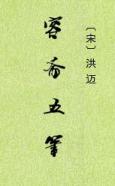 容斋五笔
〔宋〕洪迈